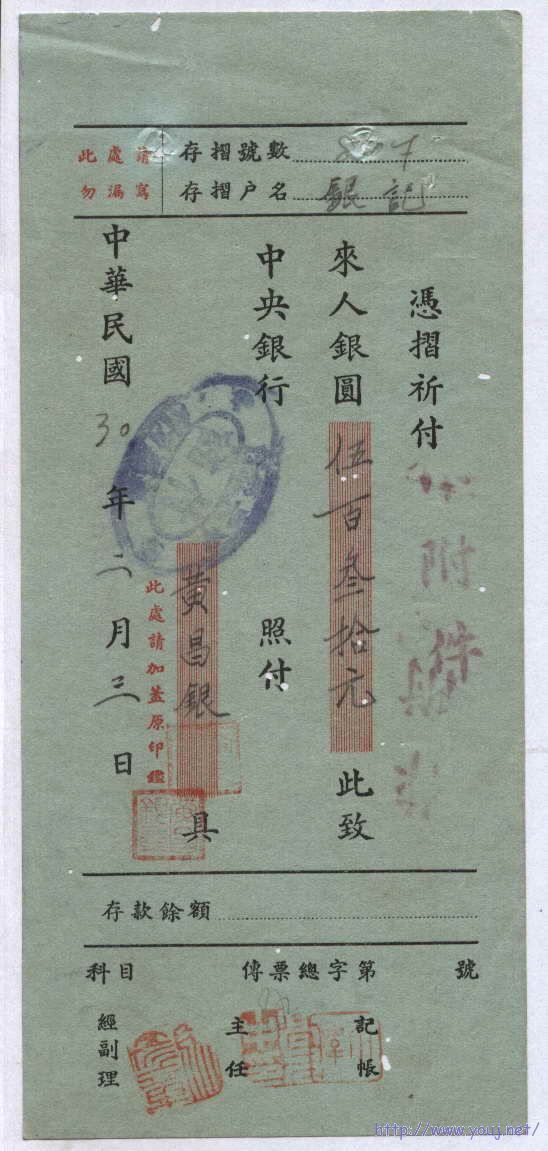 此處請勿漏寫
存摺號數
存摺戶名 銀記
憑摺祈付
來人銀圓伍百叁拾元此致
中央銀行 照付
黃昌銀具
此處請加蓋原印鑑
中華民國30年二月三日
存款餘額
科目 傳票總字第 號
經副理 主任 記帳
http://www.youj.net/